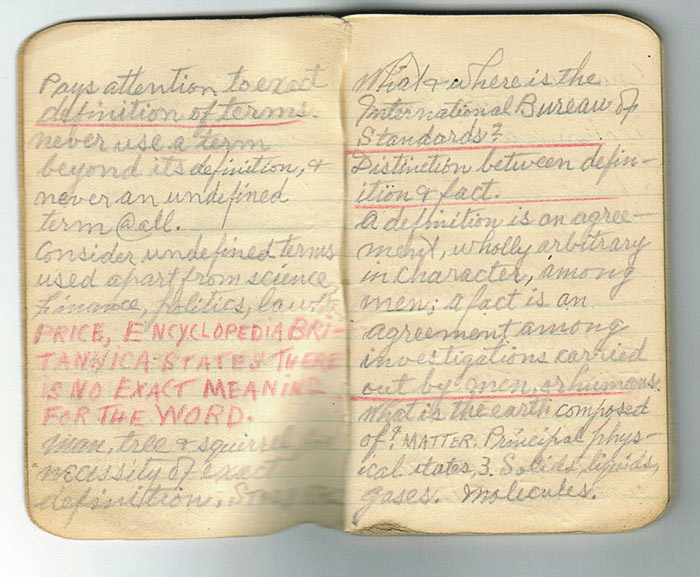 Pays attention to exact
definition of terms.
never use a term
beyond its definition, &
never an undefined
term @ all.
Consider undefined terms
used apart from science,
finance, politics, law
PRICE, ENCYCLOPEDIA BRI-
TANNICA STATES THERE
IS NO EXACT MEANING
FOR THE WORD.
man, tree & squirrel
necissity of exact
definition,
What & where is the
International Bureau of
Standards?
Distinction between defin-
ition & fact.
A definition is an agree-
ment, wholly arbitrary
in character, among
men; a fact is an
agreement among
investigations carried
out by men, or humans.
What is the earth composed
of? MATTER. Principal phys-
ical states, 3. Solids, liquids,
gases. Molecules.